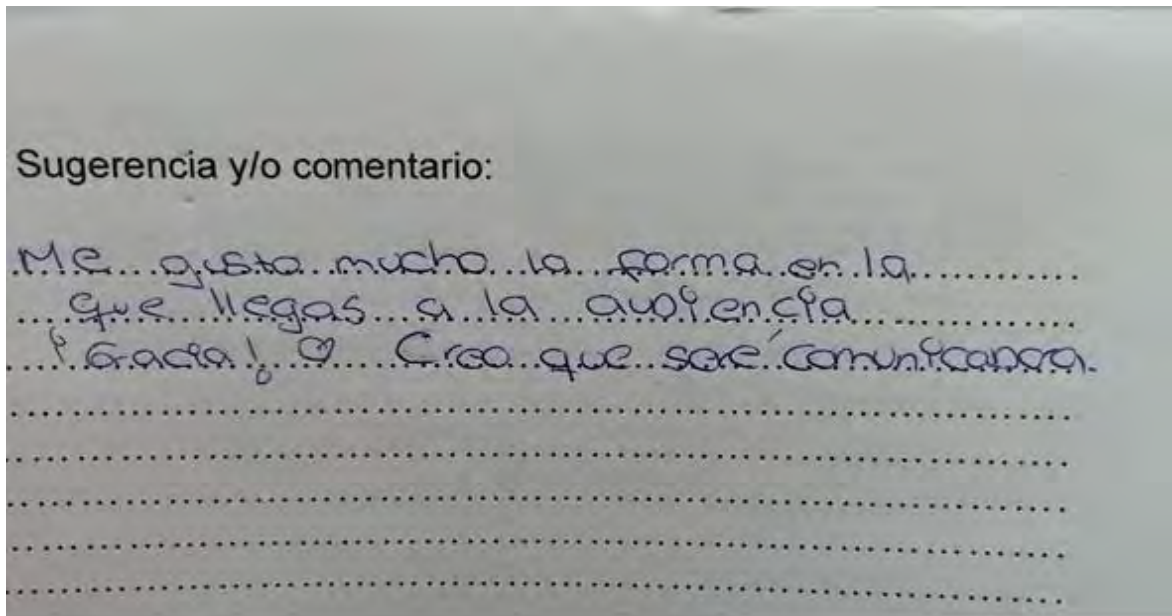 Sugerencia y/o comentario:
Me gusta mucho la forma en la
que llegas a la audiencia
¡Gracia! ♡ Creo que seré comunicadora.